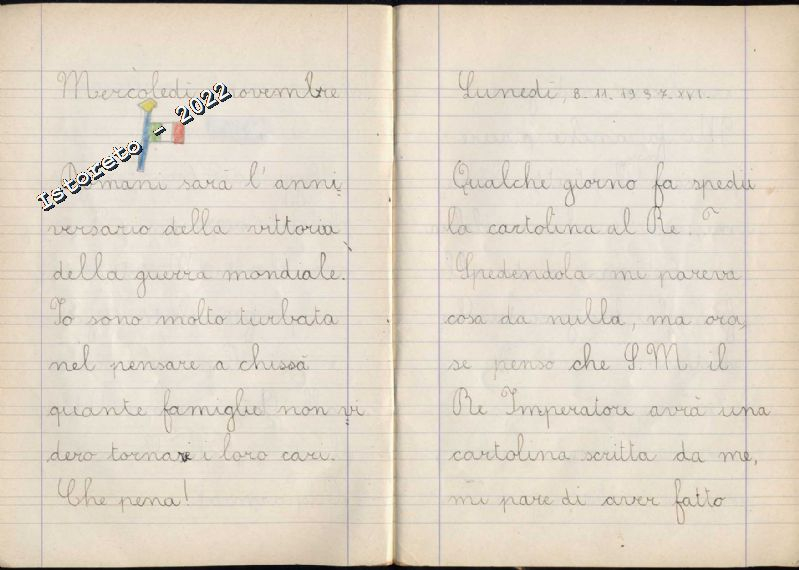 Mercoledì novembre
Istoreto - 2022
Domani sarà l'anni
versario della vittoria
della guerra mondiale.
Io sono molto turbata
nel pensare a chissà
quante famiglie non vi
dero tornare i loro cari.
Che pena!
Lunedì, 8. 11. 1937. XVI.
Qualche giorno fa spedii
la cartolina al Re.
Spedendola mi pareva
cosa da nulla, ma ora,
se penso che S. M. il
Re Imperatore avrà una
cartolina scritta da me,
mi pare di aver fatto